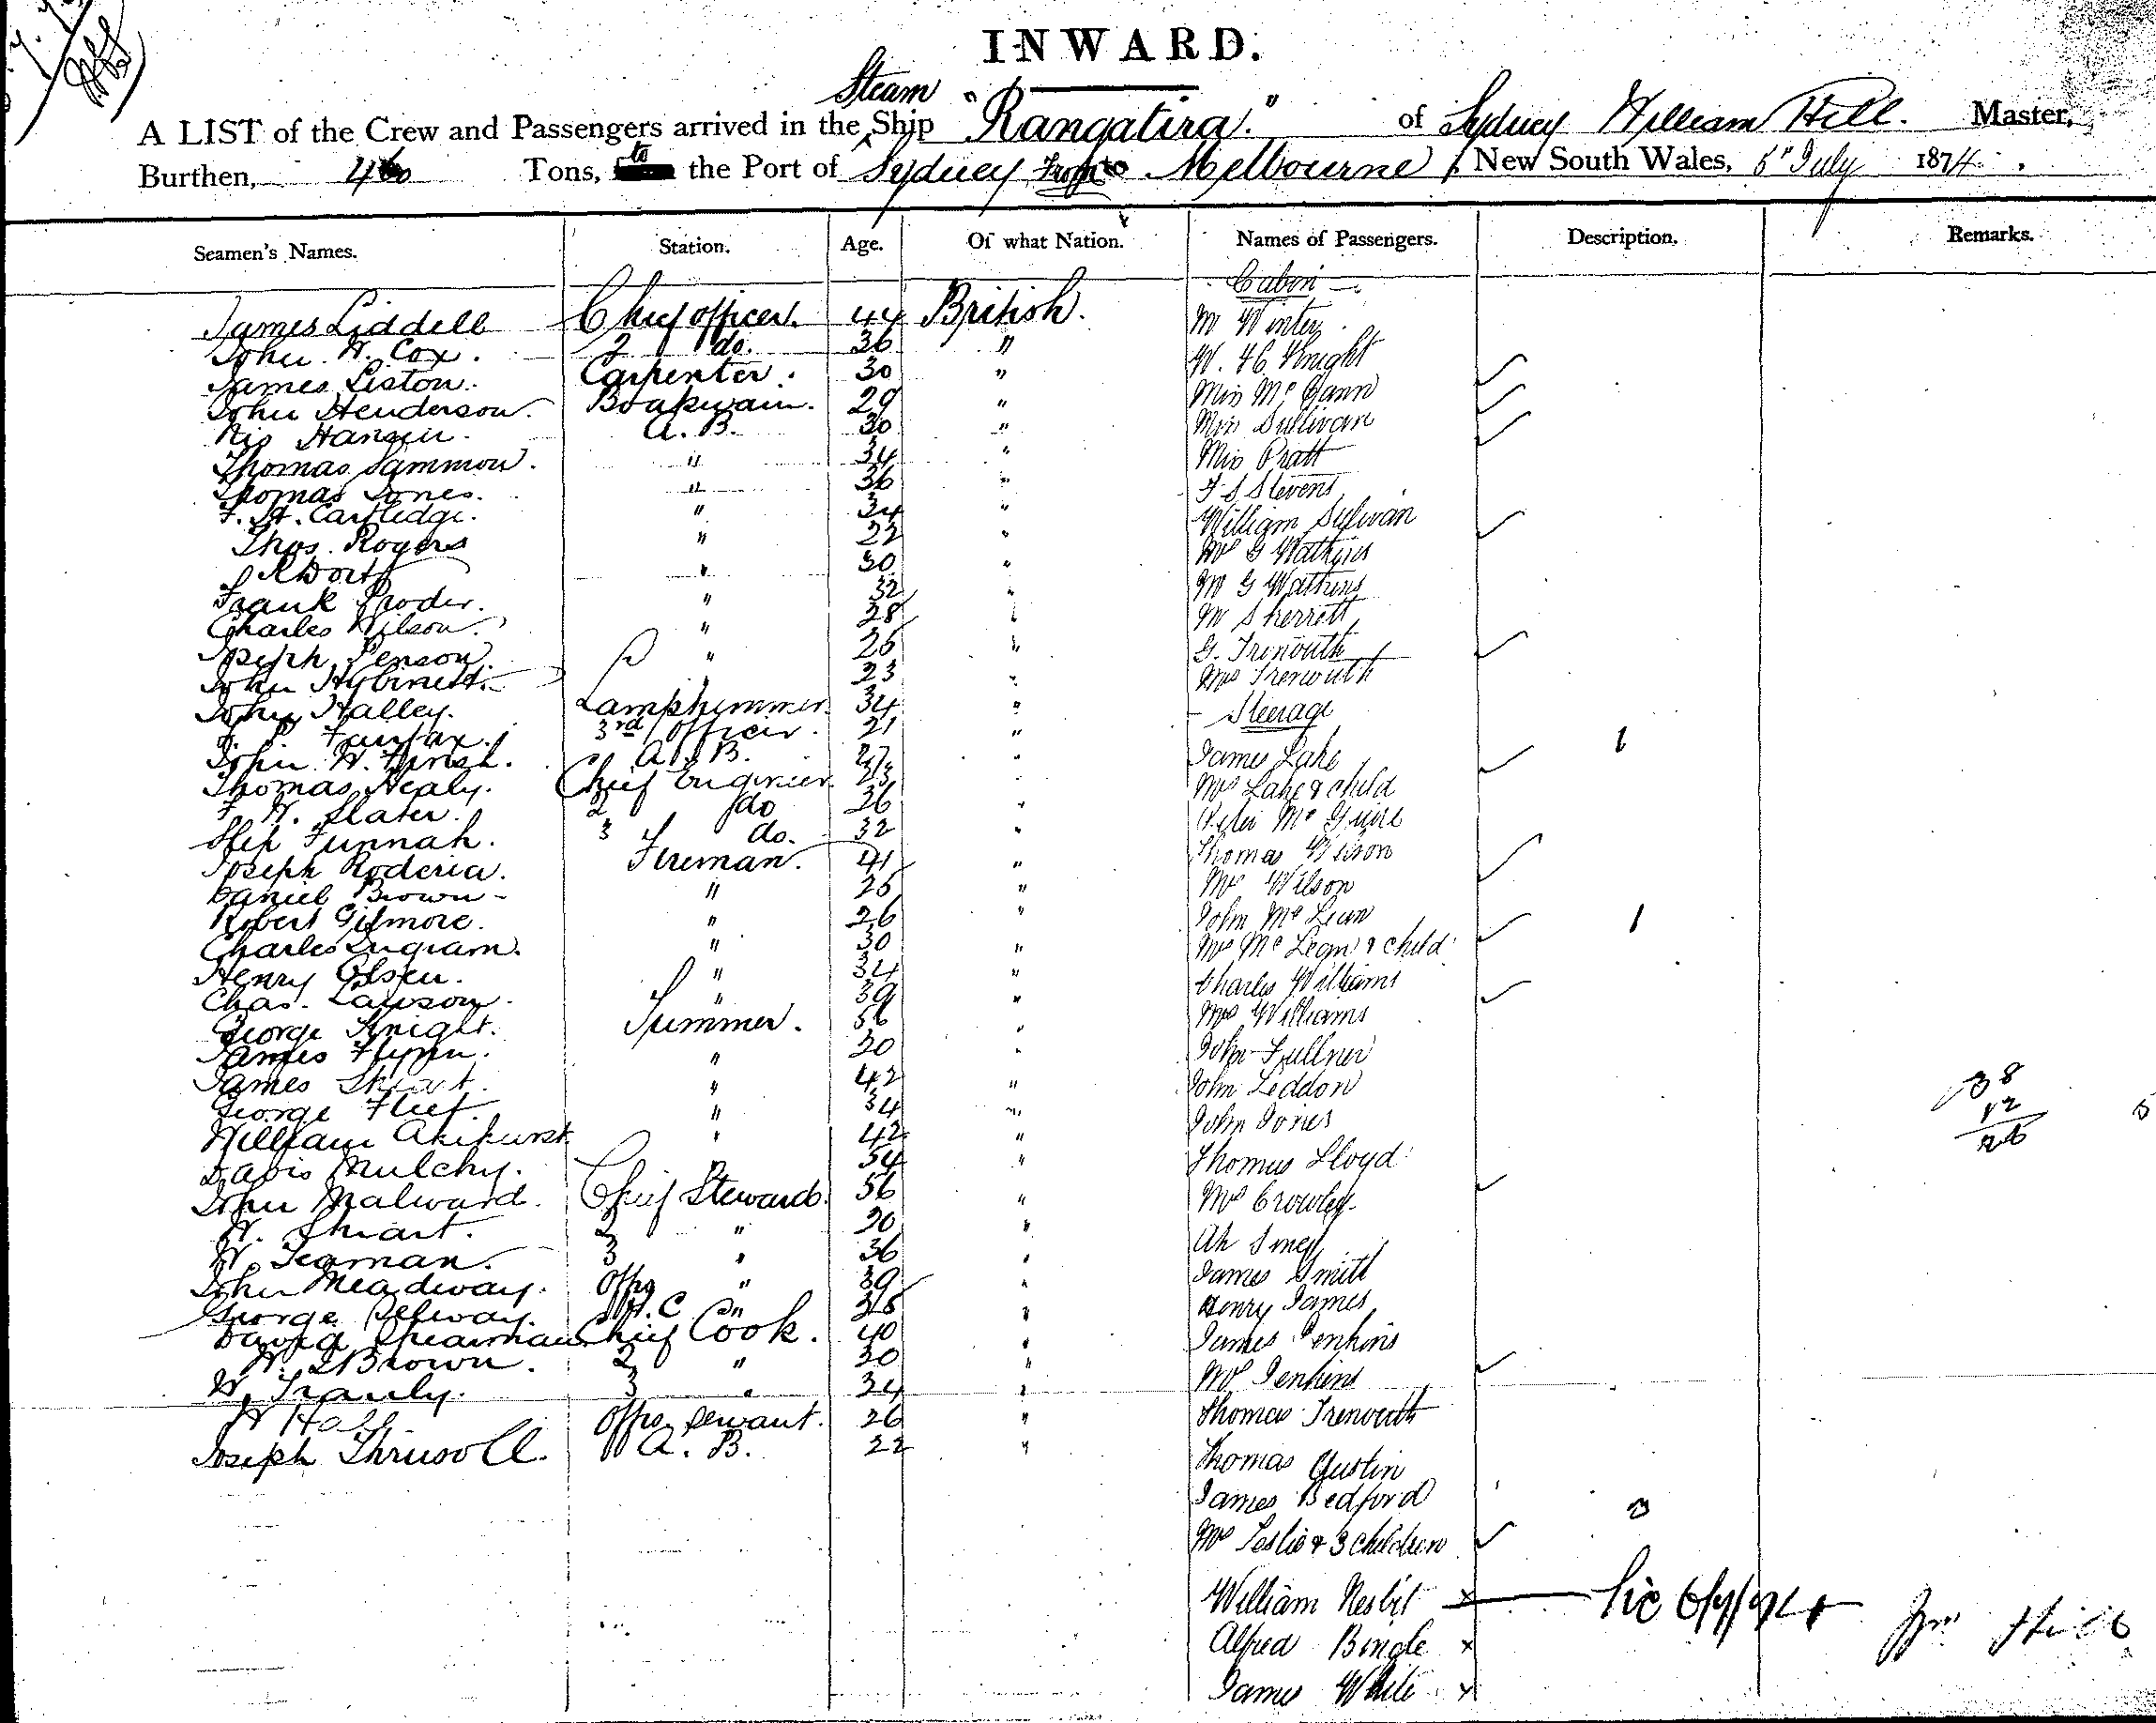 INWARD.
Steam
A LIST of the Crew and Passengers arrived in the Ship "Rangatira." of Sydney William Hill. Master,
Burthen, 460 Tons, to the Port of Sydney from Melbourne, New South Wales, 5th July 1874.
Seamen's Names. Station. Age. Of what Nation. Names of Passengers. Description. Remarks.
Cabin
James Liddell Chief officer. 44 British. Mr Winter
John W. Cox. 2 do. 36 " W. H. Knight
James Liston. Carpenter. 30 " Miss Mc Gann
John Henderson. Boatswain. 29 " Miss Sullivan
Nis Hansen. A. B. 30 " Miss Pratt
Thomas Sammon. " 34 " F S Stevens
Thomas Jones. " 36 " William Sulivan
F. A. Cartledge. " 34 " Mrs G Watkins
Thos. Rogers " 22 " Mr G Watkins
" 30 " Mr Sherrett
Frank Proder. " 32 " G. Trenouth
Charles Wilson. " 28 " Mrs Trenouth
Joseph Penson. " 25 " Steerage
John 23 " James Lake 1
John Halley. Lamptrimmer. 34 " Mrs Lake & child
Fairfax. 3rd officer. 21 " Peter Mc Guire
John W. A. B. 27 " Thomas Wilson
Thomas Healy. Chief Engineer. 23 " Mrs Wilson
F W. Slater. 2 do 26 " John Mc Lean 1
Funnah. 3 do. 32 " Mrs Mc Lean & child
Joseph Roderia. Fireman. 41 " Charles Williams
Daniel Brown " 25 " Mrs Williams
Robert Gilmore. " 26 " John Fullner
Charles Ingram. " 30 " John Leddon
Henry Olsen. " 34 " John Jones
Chas. Lawson. " 39 " Thomas Lloyd
George Knight. Trimmer. 36 " Mrs Crowley
James Flynn. " 20 " Ah
James " 42 " James Smith
George Fleet. " 34 " Henry James
William Akihurst " 42 " James Jenkins
Davis Mulchy. " 54 " Mrs Jenkins
John Malward. Chief Steward. 56 " Thomas Trenouth
W. 2 " 30 " Thomas Austin
W. Seaman. 3 " 36 " James Bedford
John Meadway. Offrs " 39 " Mrs Leslie & 3 children 3
George Selway. " 38 " William Nesbit x
David Spearman Chief Cook. 40 " Alfred Bingle x
W. Brown. 2 " 30 " James White x
W. 3 " 34 "
W Hall Offrs servant. 26 "
Joseph Thrussell. A. B. 22 "
38
12
26
Wm Hill